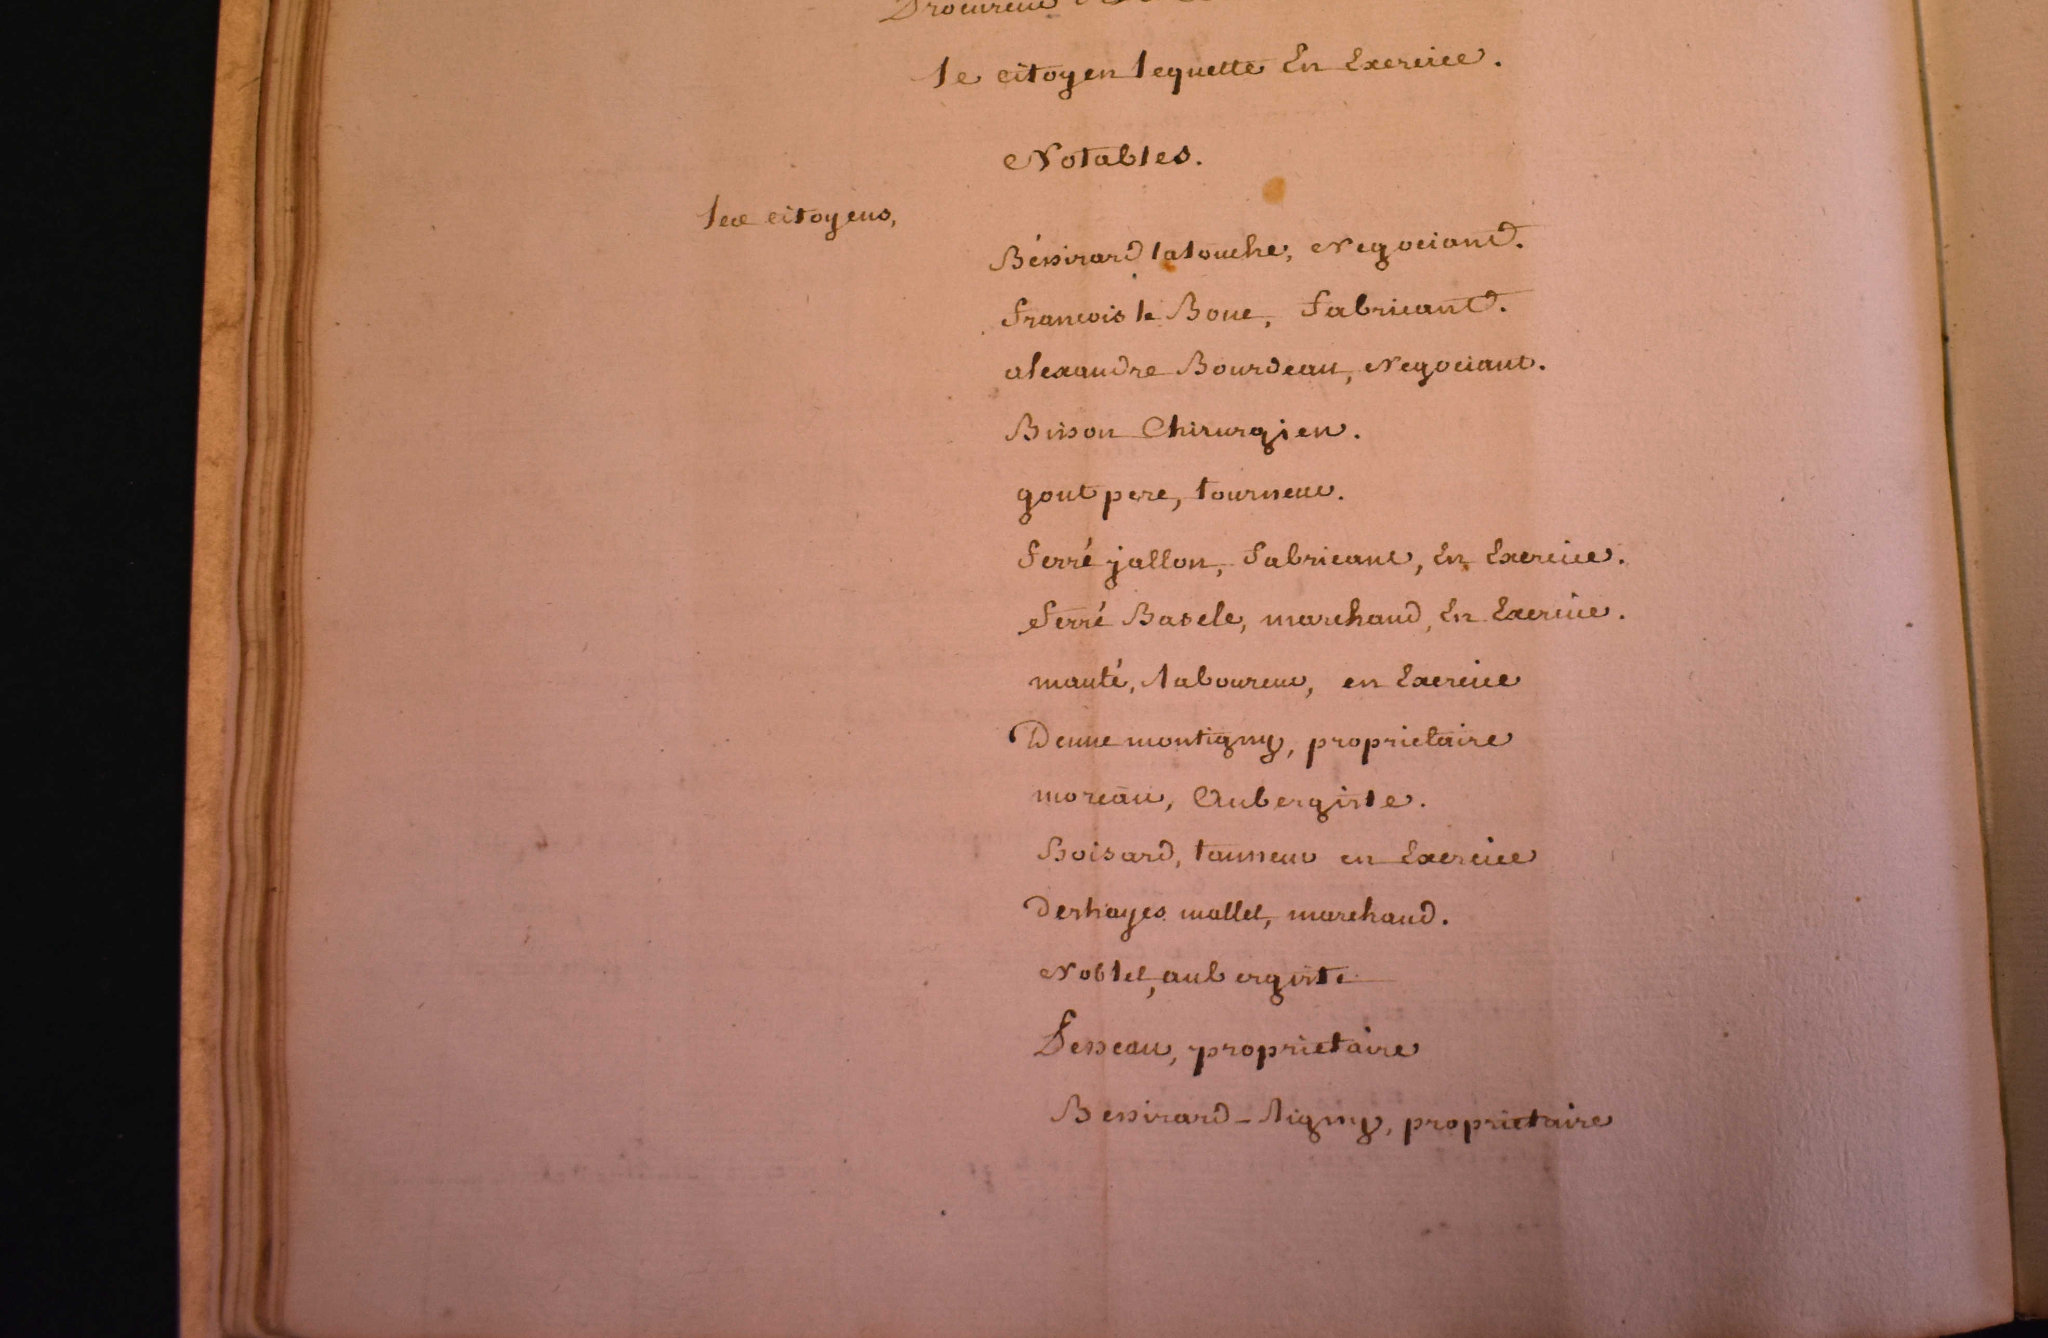 Procureur
le citoyen lequette En Exercice.
Notables.
les citoyens,
Béssirard latouche, Negociant.
françois le Boue, fabricant.
alexandre Bourdeau, Negociant.
Buson Chirurgien.
gout pere, tourneur.
ferré jallon, fabricant, En Exercice.
ferré Basele, marchand, En Exercice.
mauté, laboureur, en Exercice
Denne montigny, proprietaire
moreau, Aubergiste.
Boisard, tanneur en Exercice
deshayes mallet, marchand.
Noblet, aubergiste
Besseau, proprietaire
Bessirard - ligny, proprietaire